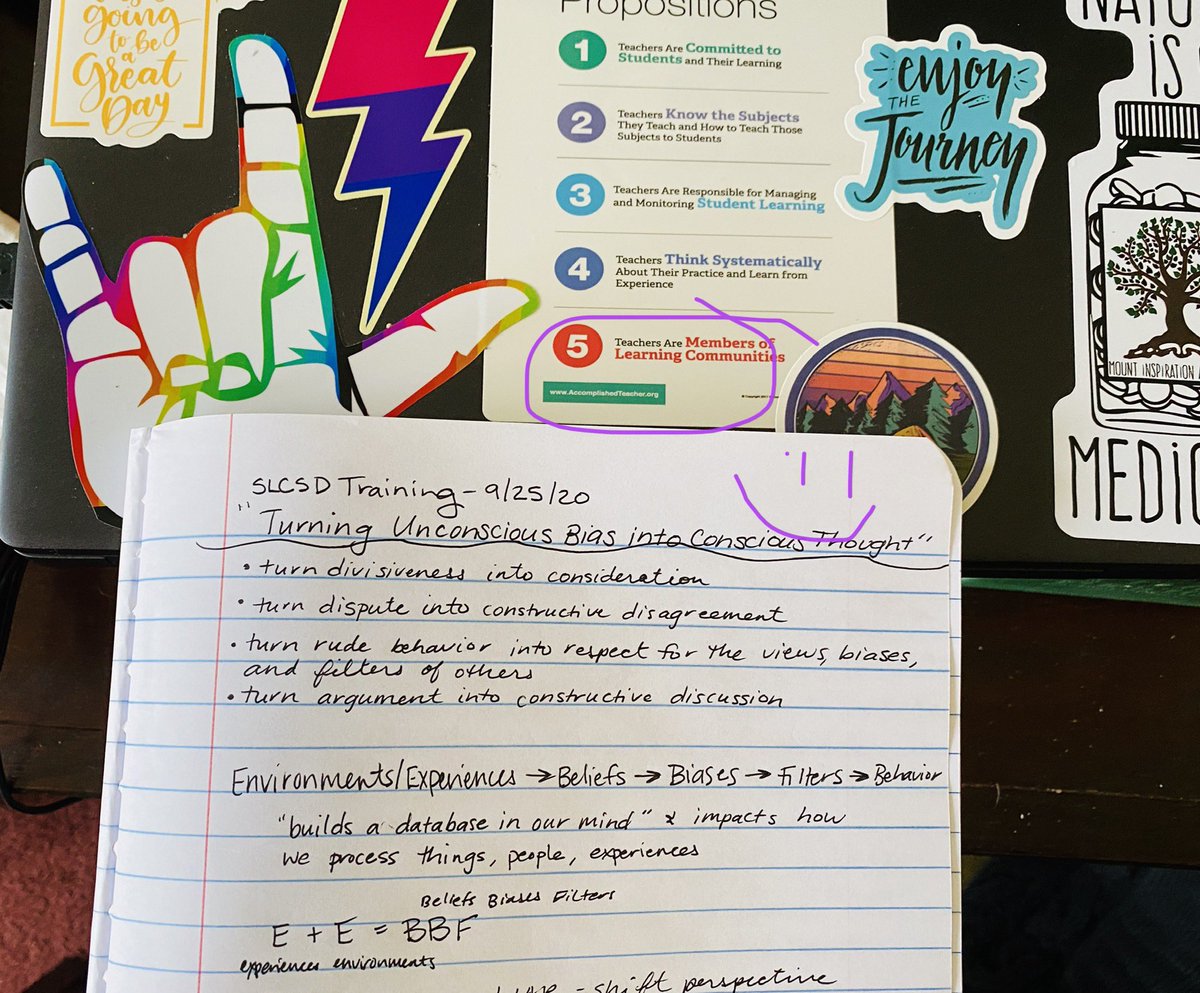 going
to be
a
Great
Day
Propositions
1
Teachers Are Committed to
Students and Their Learning
2
Teachers Know the Subjects
They Teach and How to Teach Those
Subjects to Students
3
Teachers Are Responsible for Managing
and Monitoring Student Learning
4
Teachers Think Systematically
About Their Practice and Learn from
Experience
5
Teachers Are Members of
Learning Communities
www.AccomplishedTeacher.org
enjoy
THE
Journey
IS
MOUNT INSPIRATION
SLCSD Training - 9/25/20
"Turning Unconscious Bias into Conscious Thought"
• turn divisiveness into consideration
• turn dispute into constructive disagreement
• turn rude behavior into respect for the views, biases,
and filters of others
• turn argument into constructive discussion
Environments/Experiences → Beliefs → Biases → Filters → Behavior
"builds a database in our mind" & impacts how
we process things, people, experiences
Beliefs Biases Filters
E + E = BBF
experiences environments
- shift perspective